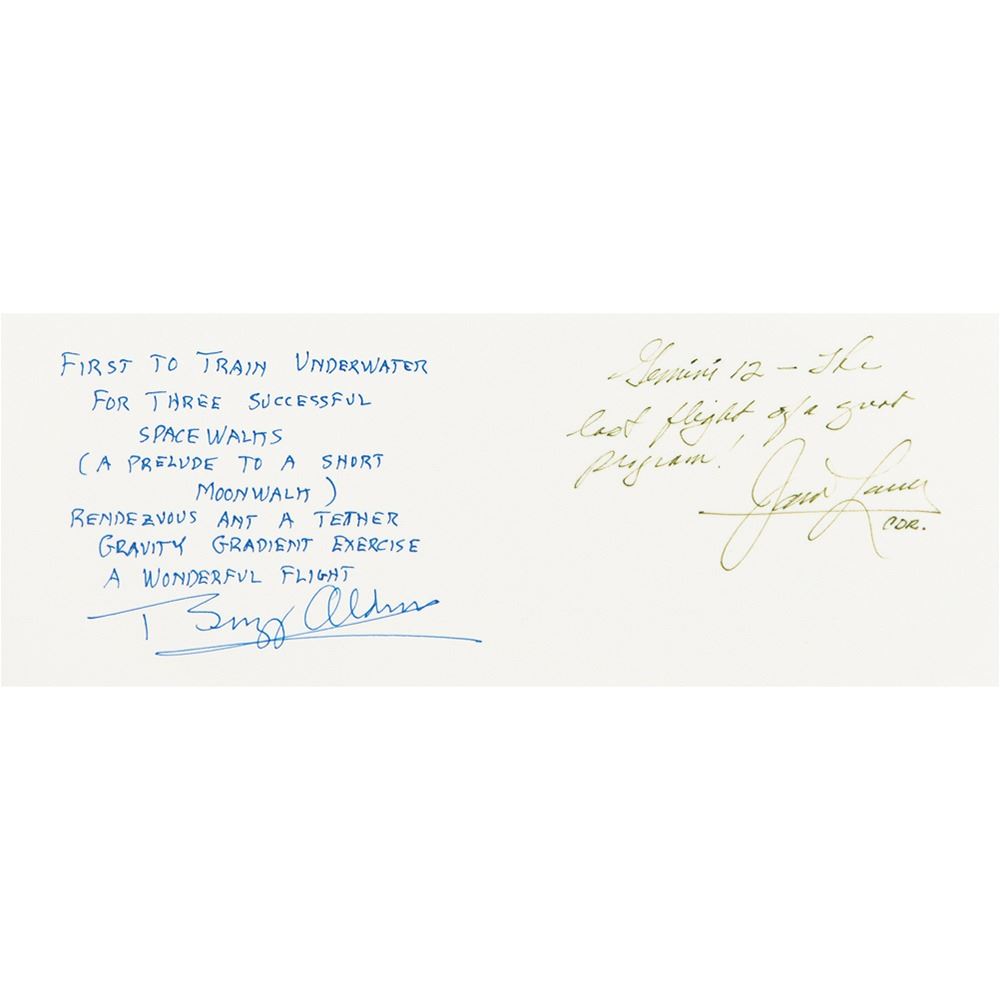 FIRST TO TRAIN UNDERWATER
FOR THREE SUCCESSFUL
SPACEWALKS
(A PRELUDE TO A SHORT
MOONWALK)
RENDEZVOUS ANT A TETHER
GRAVITY GRADIENT EXERCISE
A WONDERFUL FLIGHT
Buzz Aldrin
Gemini 12 – The
last flight of a great
program!
James Lovell
CDR.